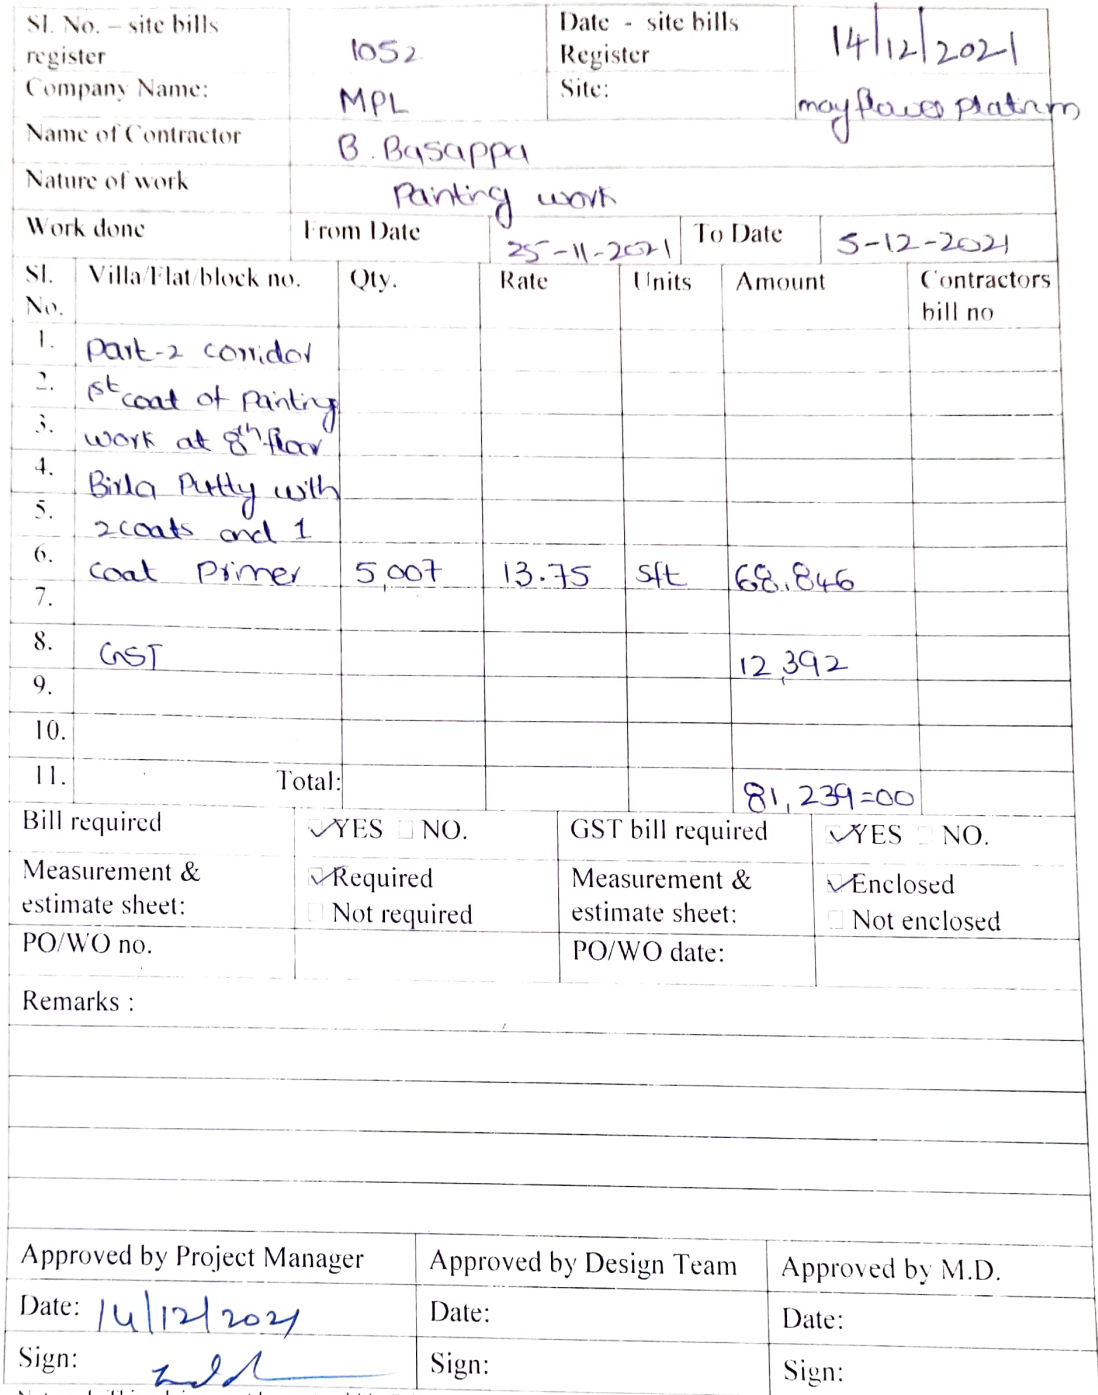 Sl. No. – site bills register 1052 Date - site bills Register 14/12/2021
Company Name: MPL Site: mayflower platinum
Name of Contractor B. Basappa
Nature of work Painting work
Work done From Date 25-11-2021 To Date 5-12-2021
Sl. No. Villa/Flat/block no. Qty. Rate Units Amount Contractors bill no
1. Part-2 corridor
2. 1st coat of painting
3. work at 8th floor
4. Birla Putty with
5. 2 coats and 1
6. coat primer 5,007 13.75 Sft 68,846
7.
8. GST 12,392
9.
10.
11. Total: 81,239=00
Bill required ✓YES □ NO. GST bill required ✓YES □ NO.
Measurement & estimate sheet: ✓Required □ Not required Measurement & estimate sheet: ✓Enclosed □ Not enclosed
PO/WO no. PO/WO date:
Remarks :
Approved by Project Manager Approved by Design Team Approved by M.D.
Date: 14/12/2021 Date: Date:
Sign: Sign: Sign: